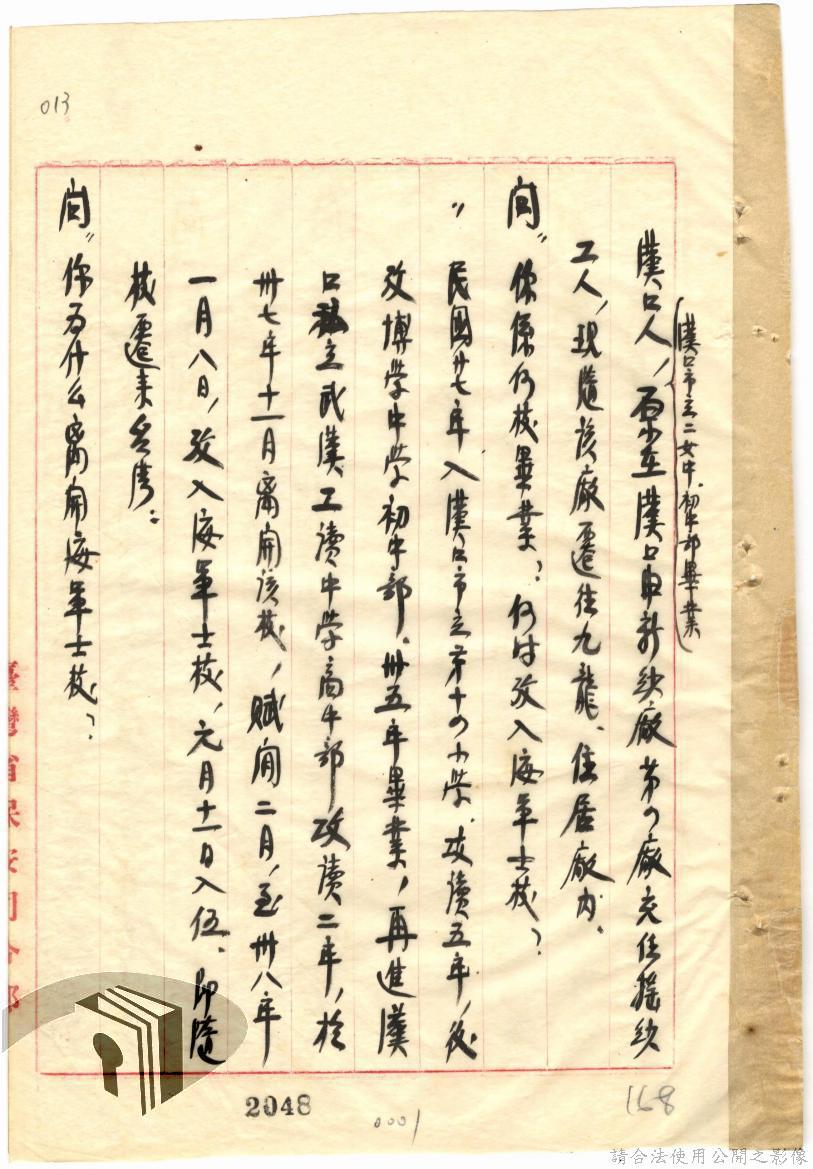 013
漢口市立二女中、初中部畢業
漢口人，原在漢口申新紗廠第四廠充任搖紗
工人，現隨該廠遷往九龍、住居廠內、
問〃你係何校畢業？何時攷入海軍士校？
〃民國廿七年入漢口市立第十四小学、攻讀五年，後
攷博学中学初中部、卅五年畢業，再進漢
口私立武漢工讀中学高中部攻讀二年，於
卅七年十一月离開該校，賦閒二月，至卅八年
一月八日，攷入海軍士校，元月十一日入伍、即隨
校遷来台湾：
問〃你为什么离開海軍士校？
臺灣省保安司令部
2048
0001
168
請合法使用公開之影像